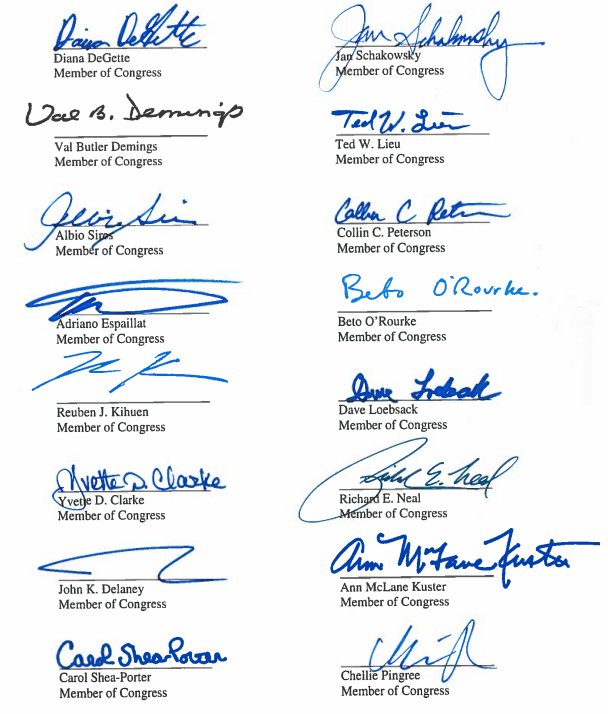 Diana DeGette
Diana DeGette
Member of Congress
Jan Schakowsky
Jan Schakowsky
Member of Congress
Val B. Demings
Val Butler Demings
Member of Congress
Ted W. Lieu
Ted W. Lieu
Member of Congress
Albio Sires
Albio Sires
Member of Congress
Collin C. Peterson
Collin C. Peterson
Member of Congress
Adriano Espaillat
Member of Congress
Beto O'Rourke.
Beto O'Rourke
Member of Congress
Reuben J. Kihuen
Member of Congress
Dave Loebsack
Dave Loebsack
Member of Congress
Yvette D. Clarke
Yvette D. Clarke
Member of Congress
Richard E. Neal
Richard E. Neal
Member of Congress
John K. Delaney
Member of Congress
Ann McLane Kuster
Ann McLane Kuster
Member of Congress
Carol Shea-Porter
Carol Shea-Porter
Member of Congress
Chellie Pingree
Member of Congress